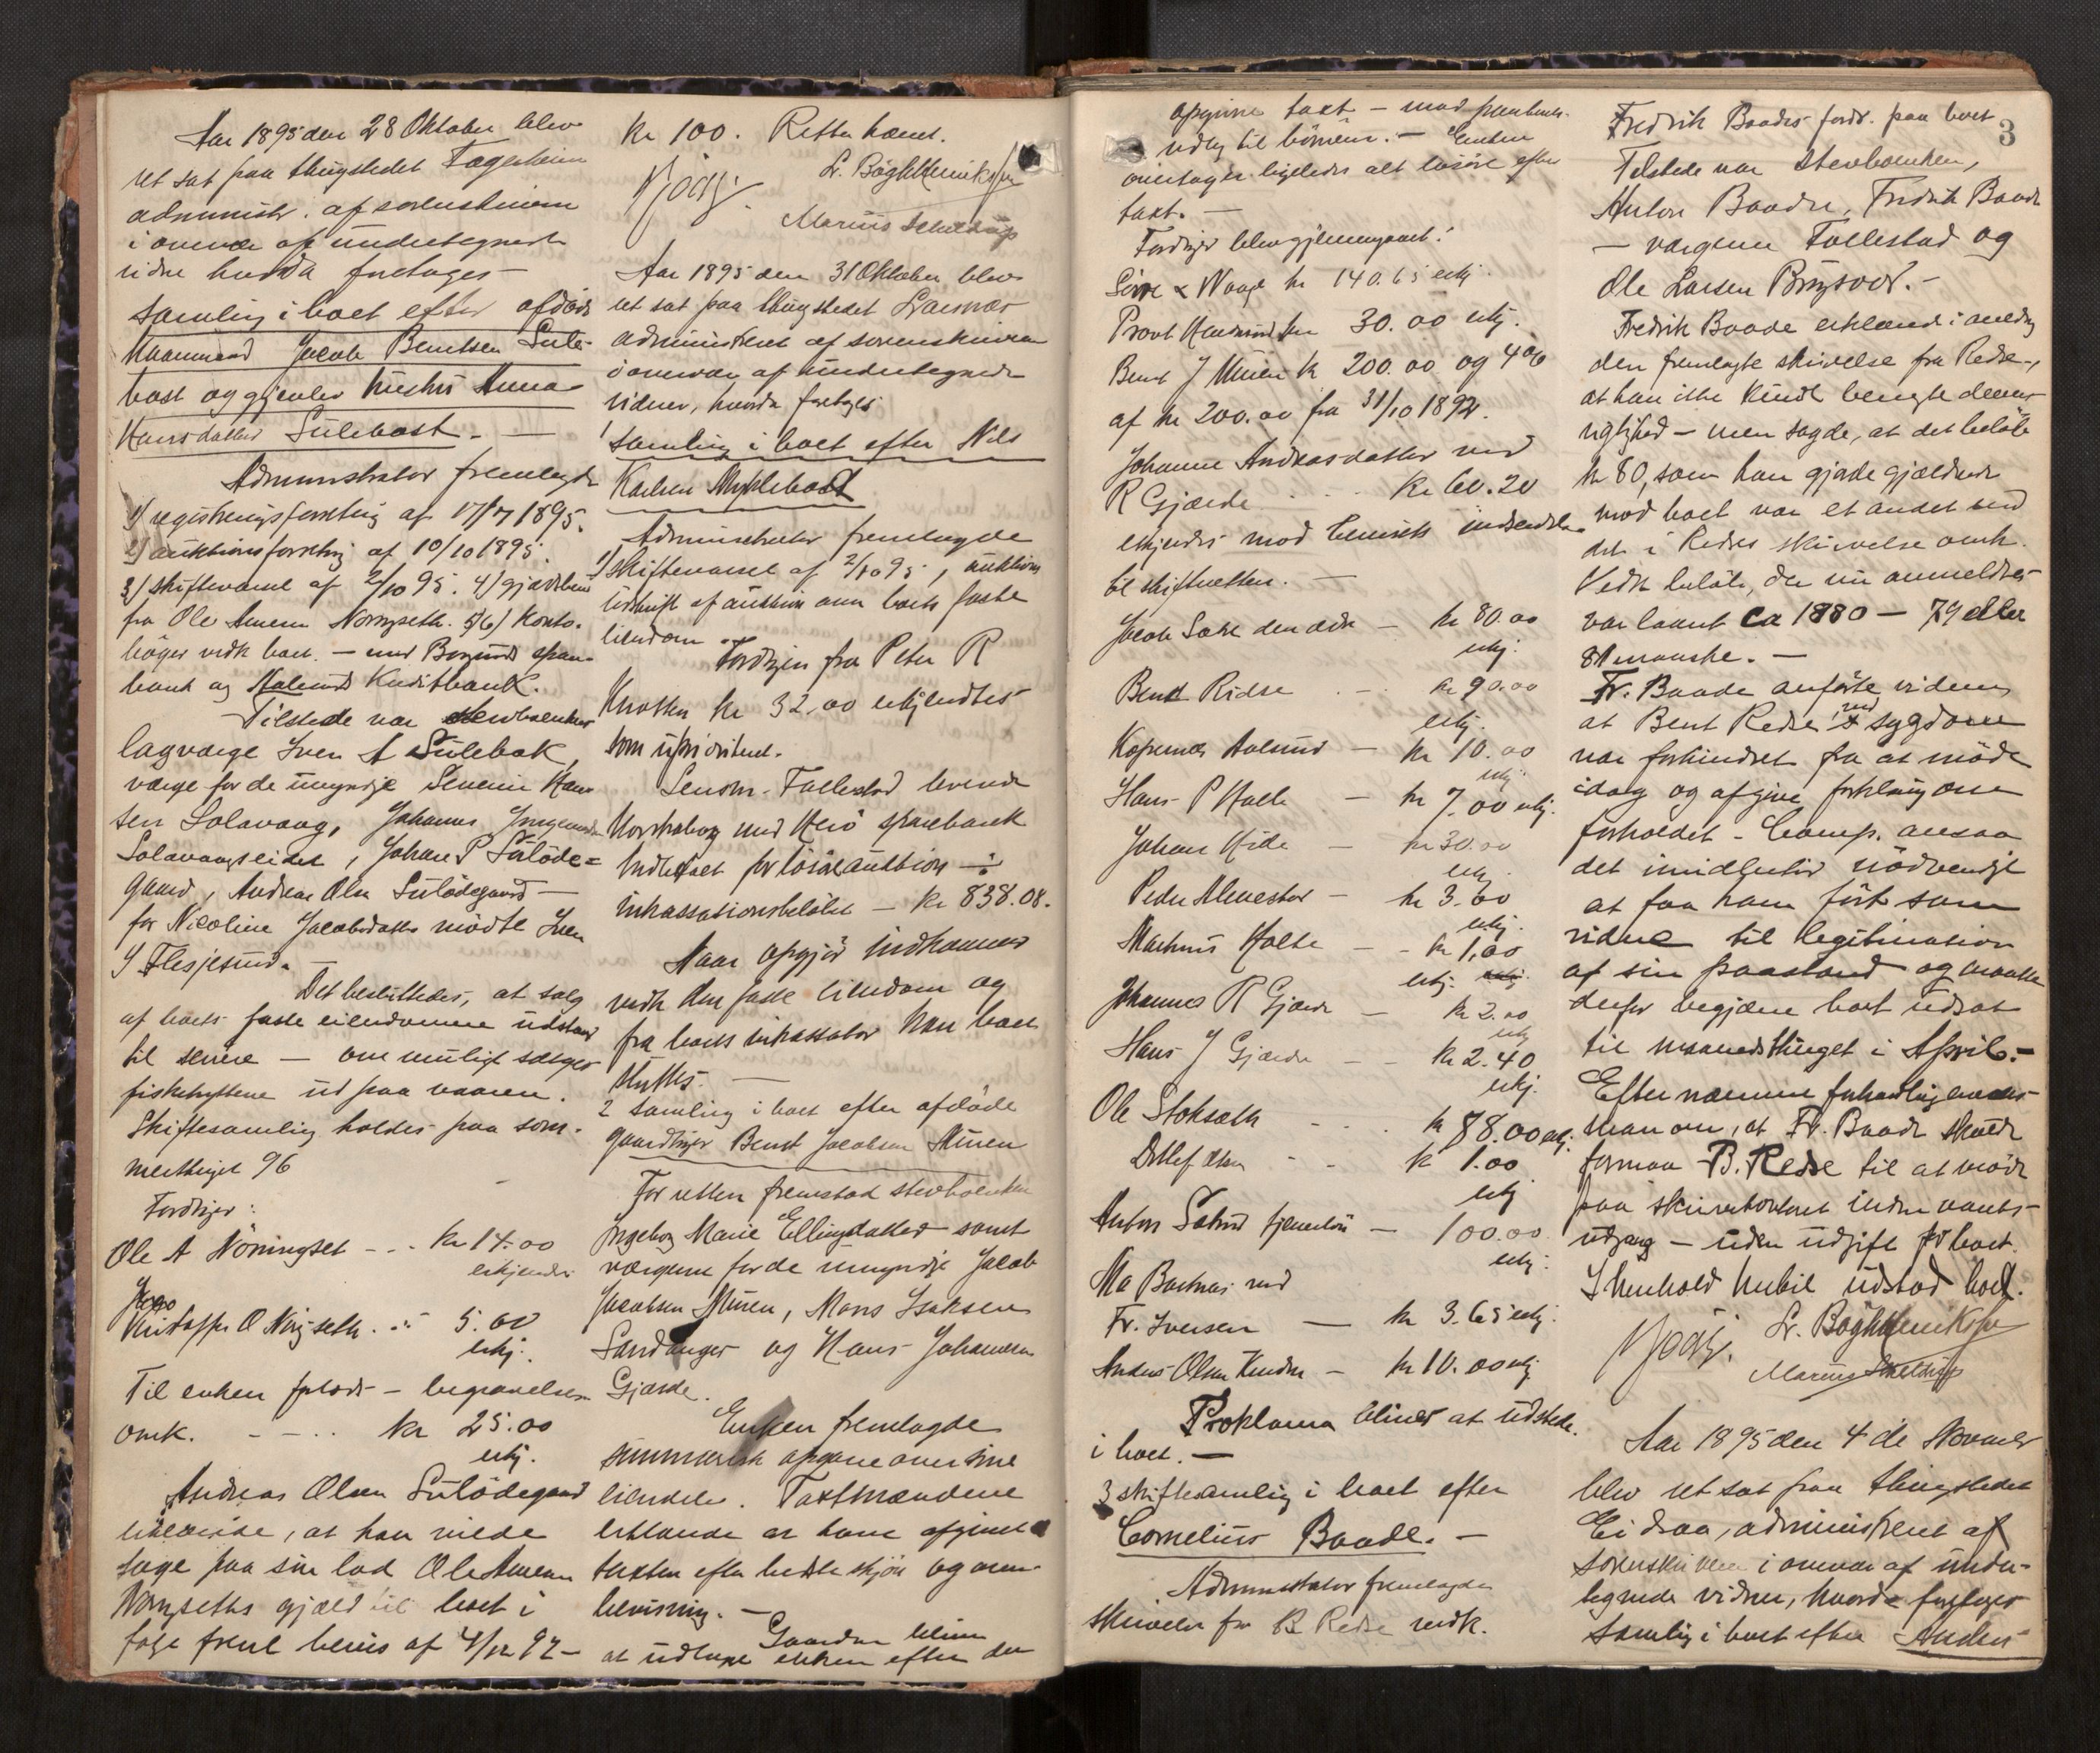 Aar 1895 den 28 Oktober blev
ret sat paa thingstedet Fagerheim
administr. af sorenskriveren
i overvær af undertegnede
vidne hvorda foretoges
Samling i boet efter afdöde
Kaarmand Jacob Bentsen Sule-
bost og gjenlev hustru Anna
Hansdatter Sulebost. —
Administrator fremlagde
1) registreringsforretning af 17/7 1895.
2) auktionsforretning af 10/10 1895.
3) skiftevarsel af 2/10 95. 4) gjældsbrev
fra Ole Amsen Norgseth. 5/6) Konto-
böger vedk boet. — med Borgunds spare-
bank og Aalesunds Kreditbank.
Tilstede var stervboenken
lagværge Iver A Sulebak,
værge for de umyndige Severin Han-
sen Solavaag, Johannes Ingebrigtsen
Solavaagseidet, Johan P Sulöde-
gaard, Andreas Olsen Sulödegaard —
for Nicoline Jacobsdatter mödte Iver
I Flesjesund.
Det besluttedes, at salg
af boets faste eiendomme udstaar
til senere — om muligt sælges
fiskehyttene ud paa vaaren.
Skiftesamling holdes paa som-
merthinget 96
Fordringer:
Ole A Nöringset - .. Kr 14.00
erkjendes
Kristoffer O Norgseth. .. 5.00
erkj.
Til enken forlods — begravelses-
omk. - - .. Kr 25.00
erkj.
Andreas Olsen Sulödegaard
erklærede, at han vilde
tage paa sin lod Ole Amsen
Norgseths gjæld til boet i
fölge freml bevis af 4/12 92 —
Kr 100. Retten hævet.
L. Bögh Henriksen
Marius Schelderup
Aar 1895 den 31 Oktober blev
ret sat paa thingstedet Larsnæs
administreret af sorenskriveren
i overvær af undertegnede
vidner, hvorda foretoges
1 samling i boet efter Nils
Karlsen Myklebost
Administrator fremlagde
1) skiftevarsel af 2/10 95, auktions
udskrift af auktion over boets faste
eiendom.
Fordringen fra Peter R
Knotten Kr 32.00 erkjendtes
som uprioriteret.
Lensm. Follestad leverede
Kontrabog med Herö sparebank
indbetalt for löseauktion ÷
inkassationsbelöbet — Kr 838.08.
Naar opgjör indkommer
vedk den faste eiendom og
fra boets inkassator kan boet
sluttes. —
2 samling i boet efter afdöde
gaardbruger Bernt Jacobsen Muren
For retten fremstod stervboenken
Ingeborg Marie Ellingsdatter samt
værgerne for de umyndige Jacob
Jacobsen Muren, Mons Isaksen
Sandanger og Hans Johannesen
Gjærde.
Enken fremlagde
summarisk opgave over sine
eiendele. Taxtmændene
erklærede at have afgivet
taxten efter bedste skjön og over-
bevisning. —
Gaarden bliver
at udlægge enken efter den
3
opgivne taxt — mod pantheds-
udlæg til börnene. — Enken
overtager ligeledes alt lösöre efter
taxt. —
Fordringer blev gjennemgaaet:
Sörre & Waage kr 140.65 erkj.
Provt Hartmund kr 30.00 erkj.
Bernt J Muren kr 200.00 og 4%
af kr 200.00 fra 31/10 1892.
Johanne Andreasdatter ved
R Gjærde .. - Kr 60.20
erkjendes mod bevisets indsendelse
til skifteretten. —
Jacob Sætre den ældre — kr 80.00
erkj.
Bernt Ridse . - . kr 90.00
erkj.
Kopernæs Aalesund — kr 10.00
erkj.
Hans P Holte — kr 7.00 erkj.
Johan Hide — kr 30.00
erkj.
Peder Almestad — kr 3.00
erkj.
Mathias Holte — - kr 1,00
erkj.
Johannes R Gjærde — kr 2.00
erkj
Hans J Gjærde — - kr 2.40
erkj.
Ole Stoksæth - .. kr 88.00 erkj.
Detlef Olsen - - kr 1.00
erkj
Anton Sætre tjenerlön — 100.00
erkj.
Ma Bartnæs ved
Fr. Iversen — kr 3.65 erkj.
Anders Olsen — kr 10.00 erkj
Proklama bliver at udstede
i boet. —
3 skiftesamling i boet efter
Cornelius Baade. —
Administrator fremlagde
skrivelse fra B Redse vedk.
Fredrik Baades fordr. paa boet
Tilstede var stervboenken,
Anton Baade, Fredrik Baade
— værgerne Follestad og
Ole Larsen Bringsvor. —
Fredrik Baade erklærede i anledng
den fremlagte skrivelse fra Redse,
at han ikke kunde benegte dennes
rigtighed — men sagde, at det belöb
kr 80, som han gjorde gjældende
mod boet var et andet end
det i Redses skrivelse omh.
Vedk belöb, der nu anmeldtes
var laant ca 1880 — 79 eller
81 maaske. —
Fr. Baade anförte videre
at Bernt Redse ved sygdom
var forhindret fra at möde
idag og afgive forklaring om
forholdet. — Comp. ansaa
det imidlertid nödvendigt
at faa ham fört som
vidne til legitimation
af sin paastand og maatte
derfor begjære boet udsat
til maanedsthinget i April. —
Efter nærmere forhandling enedes
man om, at Fr. Baade skulde
formaa B. Redse til at möde
paa skriverkontoret inden aarets
udgang — uden udgift for boet.
I henhold hertil udstod boet.
L. Bögh Henriksen
Marius Schelderup
Aar 1895 den 4 de November
blev ret sat paa thingstedet
Eidsaa, administreret af
sorenskriveren i overvær af under-
tegnede vidner, hvorda foretoges
Samling i boet efter Anders